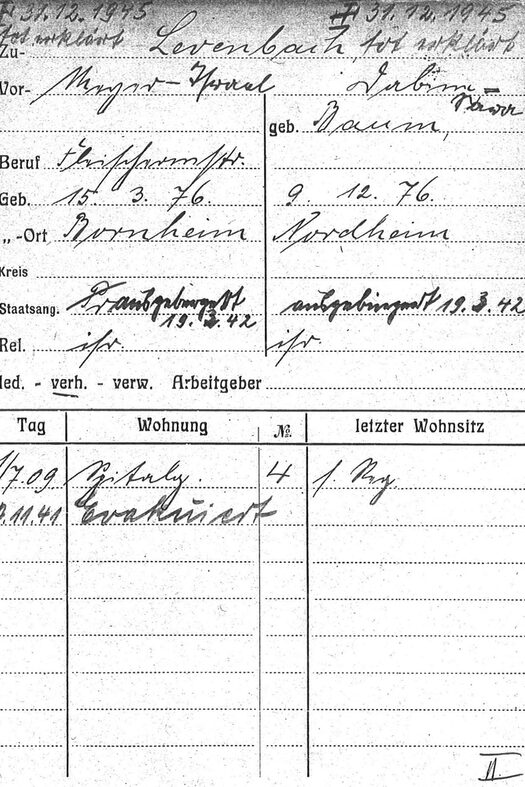 † 31.12.1945 † 31.12.1945
tot erklärt
Zu- Levenbach, tot erklärt
Vor- Meyer-Israel
Sara
geb. Baum,
Beruf Fleischermstr.
Geb. 15. 3. 76. 9. 12. 76.
„ -Ort Bornheim Nordheim
Kreis
Staatsang. Pr. ausgebürgert ausgebürgert 19.3.42
19.3.42
Rel. isr. isr.
led. - verh. - verw. Arbeitgeber
Tag Wohnung № letzter Wohnsitz
7.09 Spitalg. 4
.11.41 Evakuiert
II.